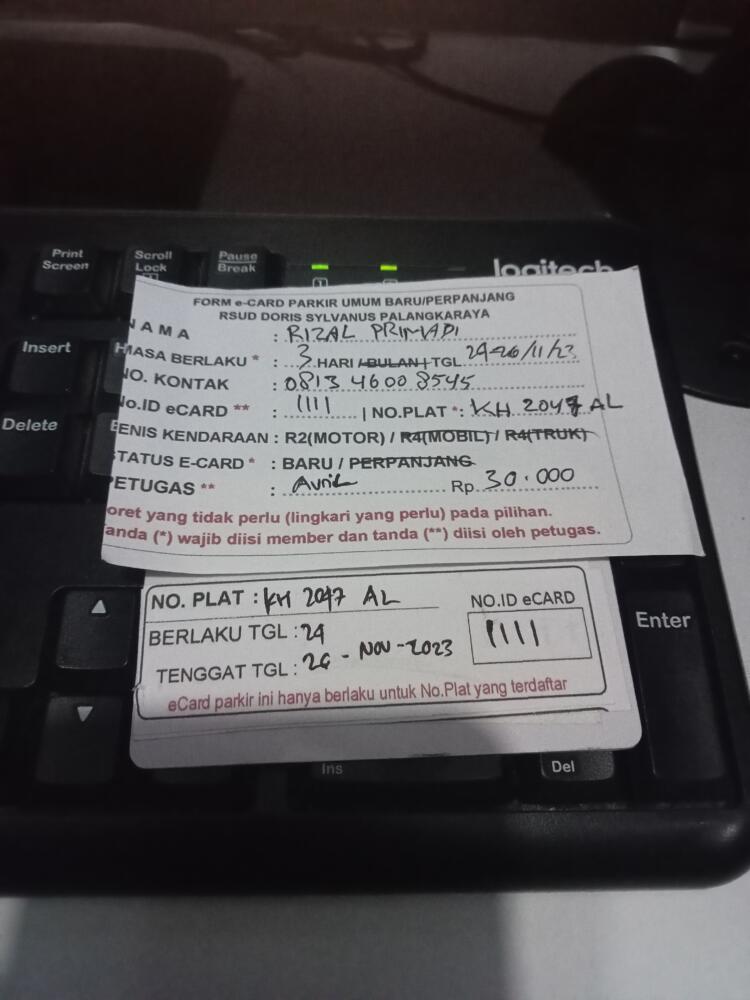 Print Screen
Scroll Lock
Pause Break
1
logitech
Insert
Delete
FORM e-CARD PARKIR UMUM BARU/PERPANJANG
RSUD DORIS SYLVANUS PALANGKARAYA
NAMA : RIZAL PRIMADI
MASA BERLAKU * : 3 HARI / BULAN | TGL 24-26/11/23
NO. KONTAK : 0813 4600 8545
No.ID eCARD ** : 1111 | NO.PLAT *: KH 2047 AL
JENIS KENDARAAN : R2(MOTOR) / R4(MOBIL) / R4(TRUK)
STATUS E-CARD * : BARU / PERPANJANG
PETUGAS ** : Avril Rp. 30.000
oret yang tidak perlu (lingkari yang perlu) pada pilihan.
anda (*) wajib diisi member dan tanda (**) diisi oleh petugas.
NO. PLAT : KH 2047 AL
NO.ID eCARD
1111
BERLAKU TGL : 24
TENGGAT TGL : 26 - NOV - 2023
eCard parkir ini hanya berlaku untuk No.Plat yang terdaftar
Enter
Ins
Del